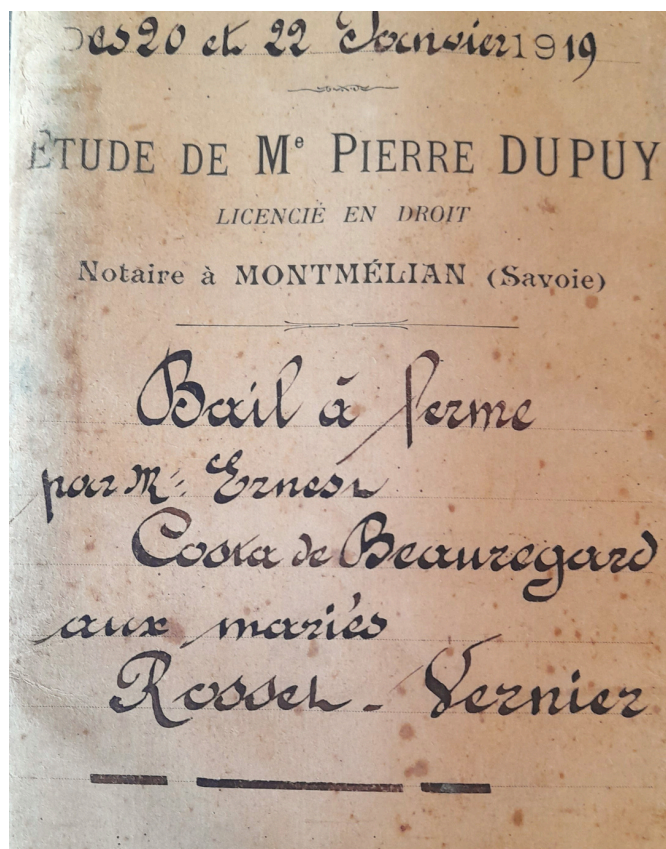 Des 20 et 22 Janvier 1919
ÉTUDE DE Me PIERRE DUPUY
LICENCIÉ EN DROIT
Notaire à MONTMÉLIAN (Savoie)
Bail à ferme
par Mr Ernest
Costa de Beauregard
aux mariés
Rosset - Vernier